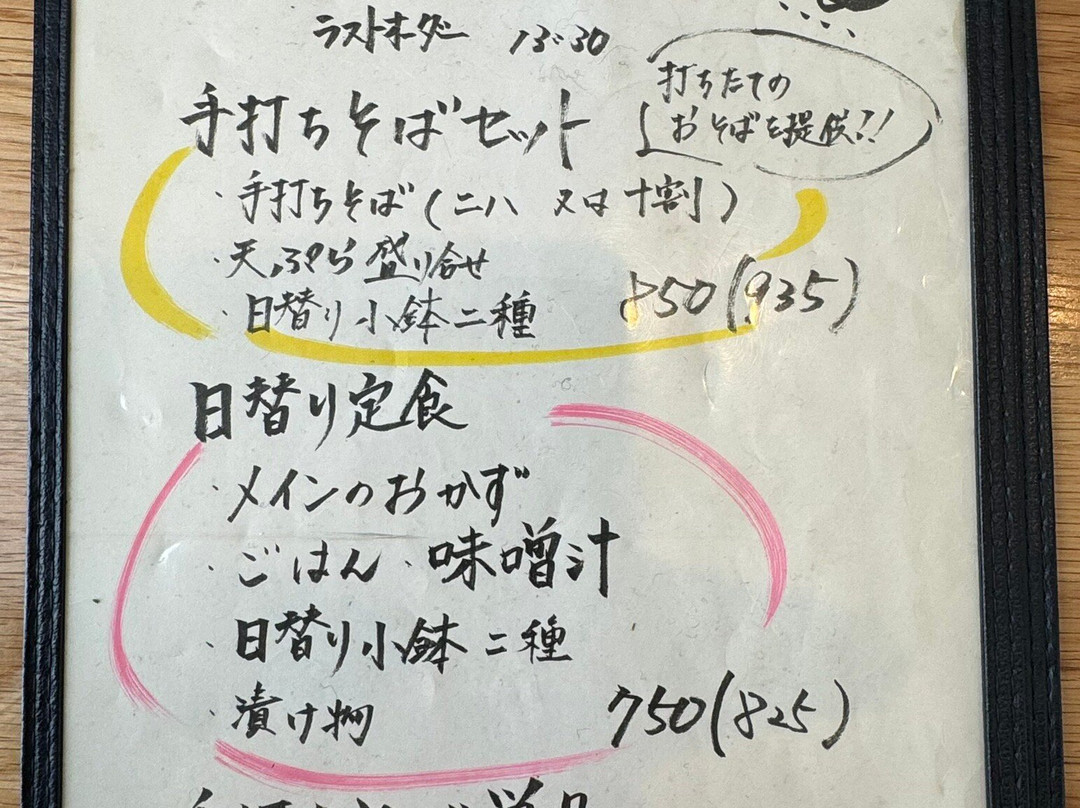 ラストオーダー 13:30
手打ちそばセット
打ちたての
おそばを提供!!
・手打ちそば(二八 又は 十割)
・天ぷら盛り合せ
・日替り小鉢二種 850(935)
日替り定食
・メインのおかず
・ごはん・味噌汁
・日替り小鉢 二種
・漬け物 750(825)